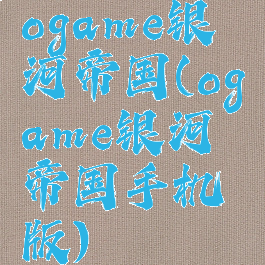 ogame银
河帝国(og
ame银河
帝国手机
版)